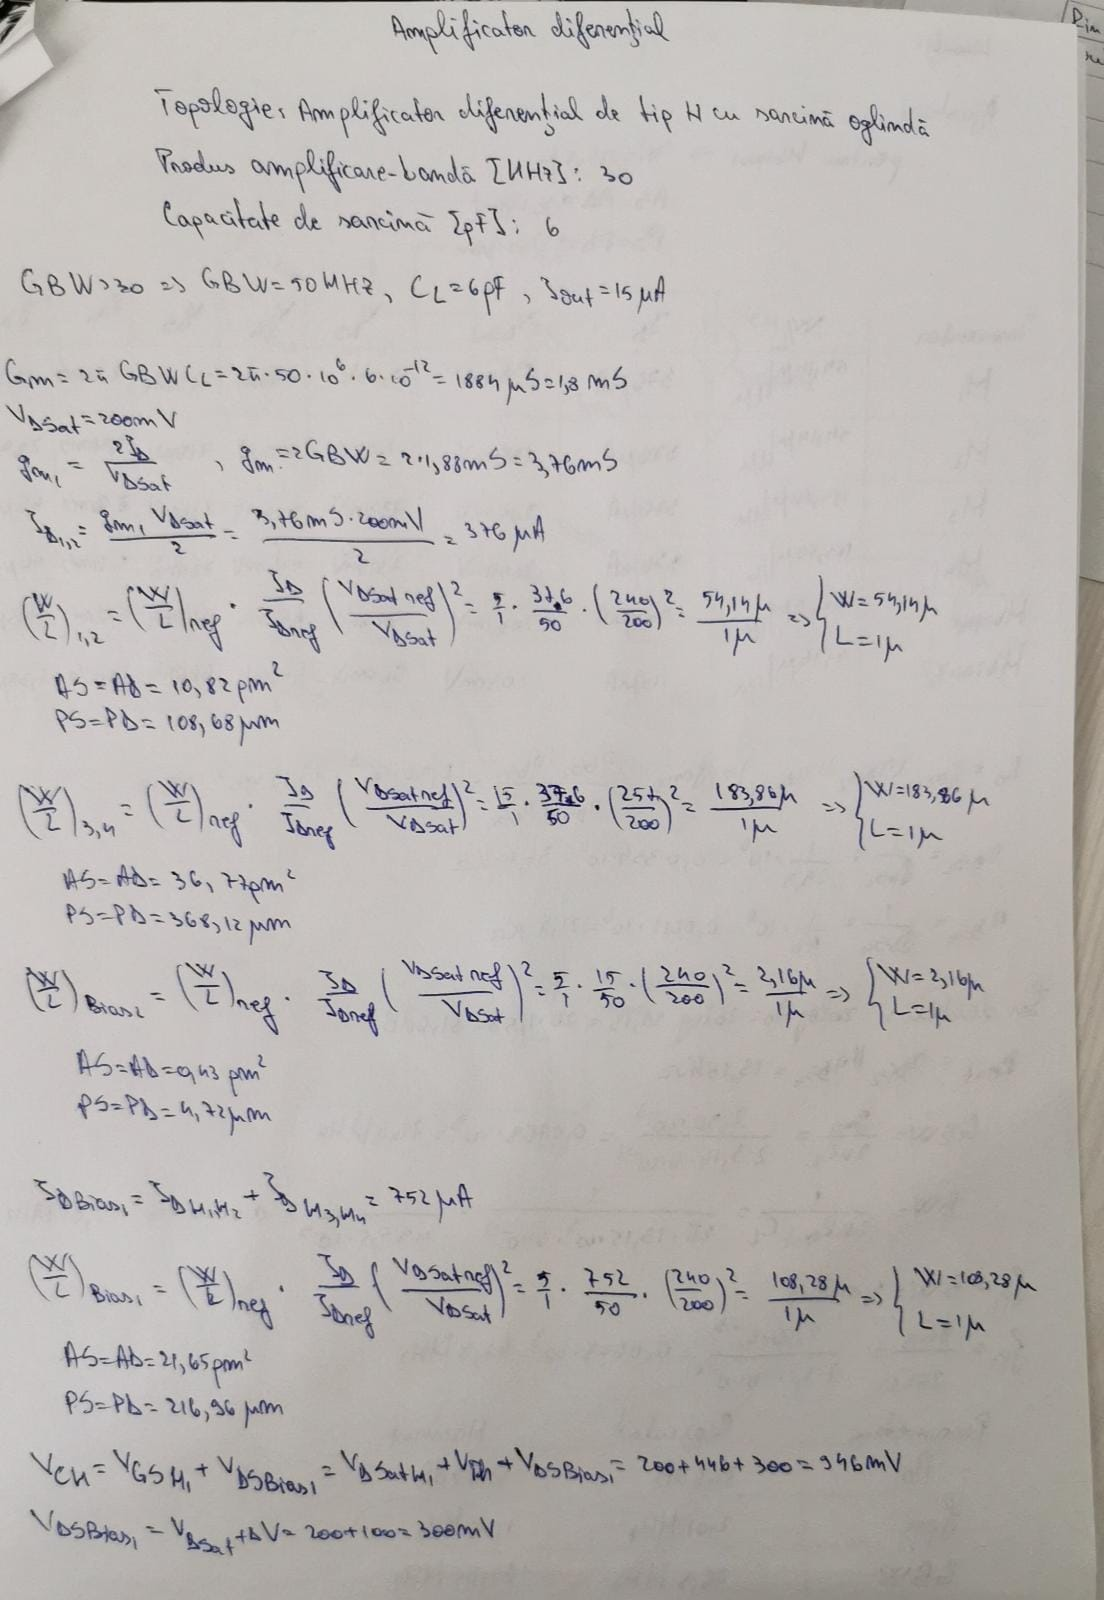 Amplificator diferențial
Topologie: Amplificator diferențial de tip N cu sarcină oglindă
Produs amplificare-bandă [MHz]: 30
Capacitate de sarcină [pF]: 6
GBW>30 => GBW=50MHz, CL=6pF, Iout=15µA
Gm=2π GBW CL=2π·50·10^6·6·10^-12=1884µS=1,8mS
VDSat=200mV
gm1=2ID/VDSat, gm=2GBW=2·1,88mS=3,76mS
ID1,2=gm1 VDSat/2=3,76mS·200mV/2=376µA
(W/L)1,2=(W/L)ref·ID/IDref(VDSat ref/VDSat)^2=5/1·37,6/50·(240/200)^2=54,14µ/1µ=>{W=54,14µ L=1µ
AS=AD=10,82pm^2
PS=PD=108,68µm
(W/L)3,4=(W/L)ref·ID/IDref(VDSatref/VDSat)^2=15/1·37,6/50·(257/200)^2=183,86µ/1µ=>{W=183,86µ L=1µ
AS=AD=36,77pm^2
PS=PD=368,12µm
(W/L)Bias2=(W/L)ref·ID/IDref(VDSatref/VDSat)^2=5/1·15/50·(240/200)^2=2,16µ/1µ=>{W=2,16µ L=1µ
AS=AD=0,43pm^2
PS=PD=4,72µm
IDBias1=IDM1,M2+IDM3,M4=752µA
(W/L)Bias1=(W/L)ref·ID/IDref(VDSatref/VDSat)^2=5/1·752/50·(240/200)^2=108,28µ/1µ=>{W=108,28µ L=1µ
AS=AD=21,65pm^2
PS=PD=216,96µm
VCM=VGSM1+VDSBias1=VDSatM1+VTh+VDSBias1=200+446+300=946mV
VDSBias1=VDSat+ΔV=200+100=300mV